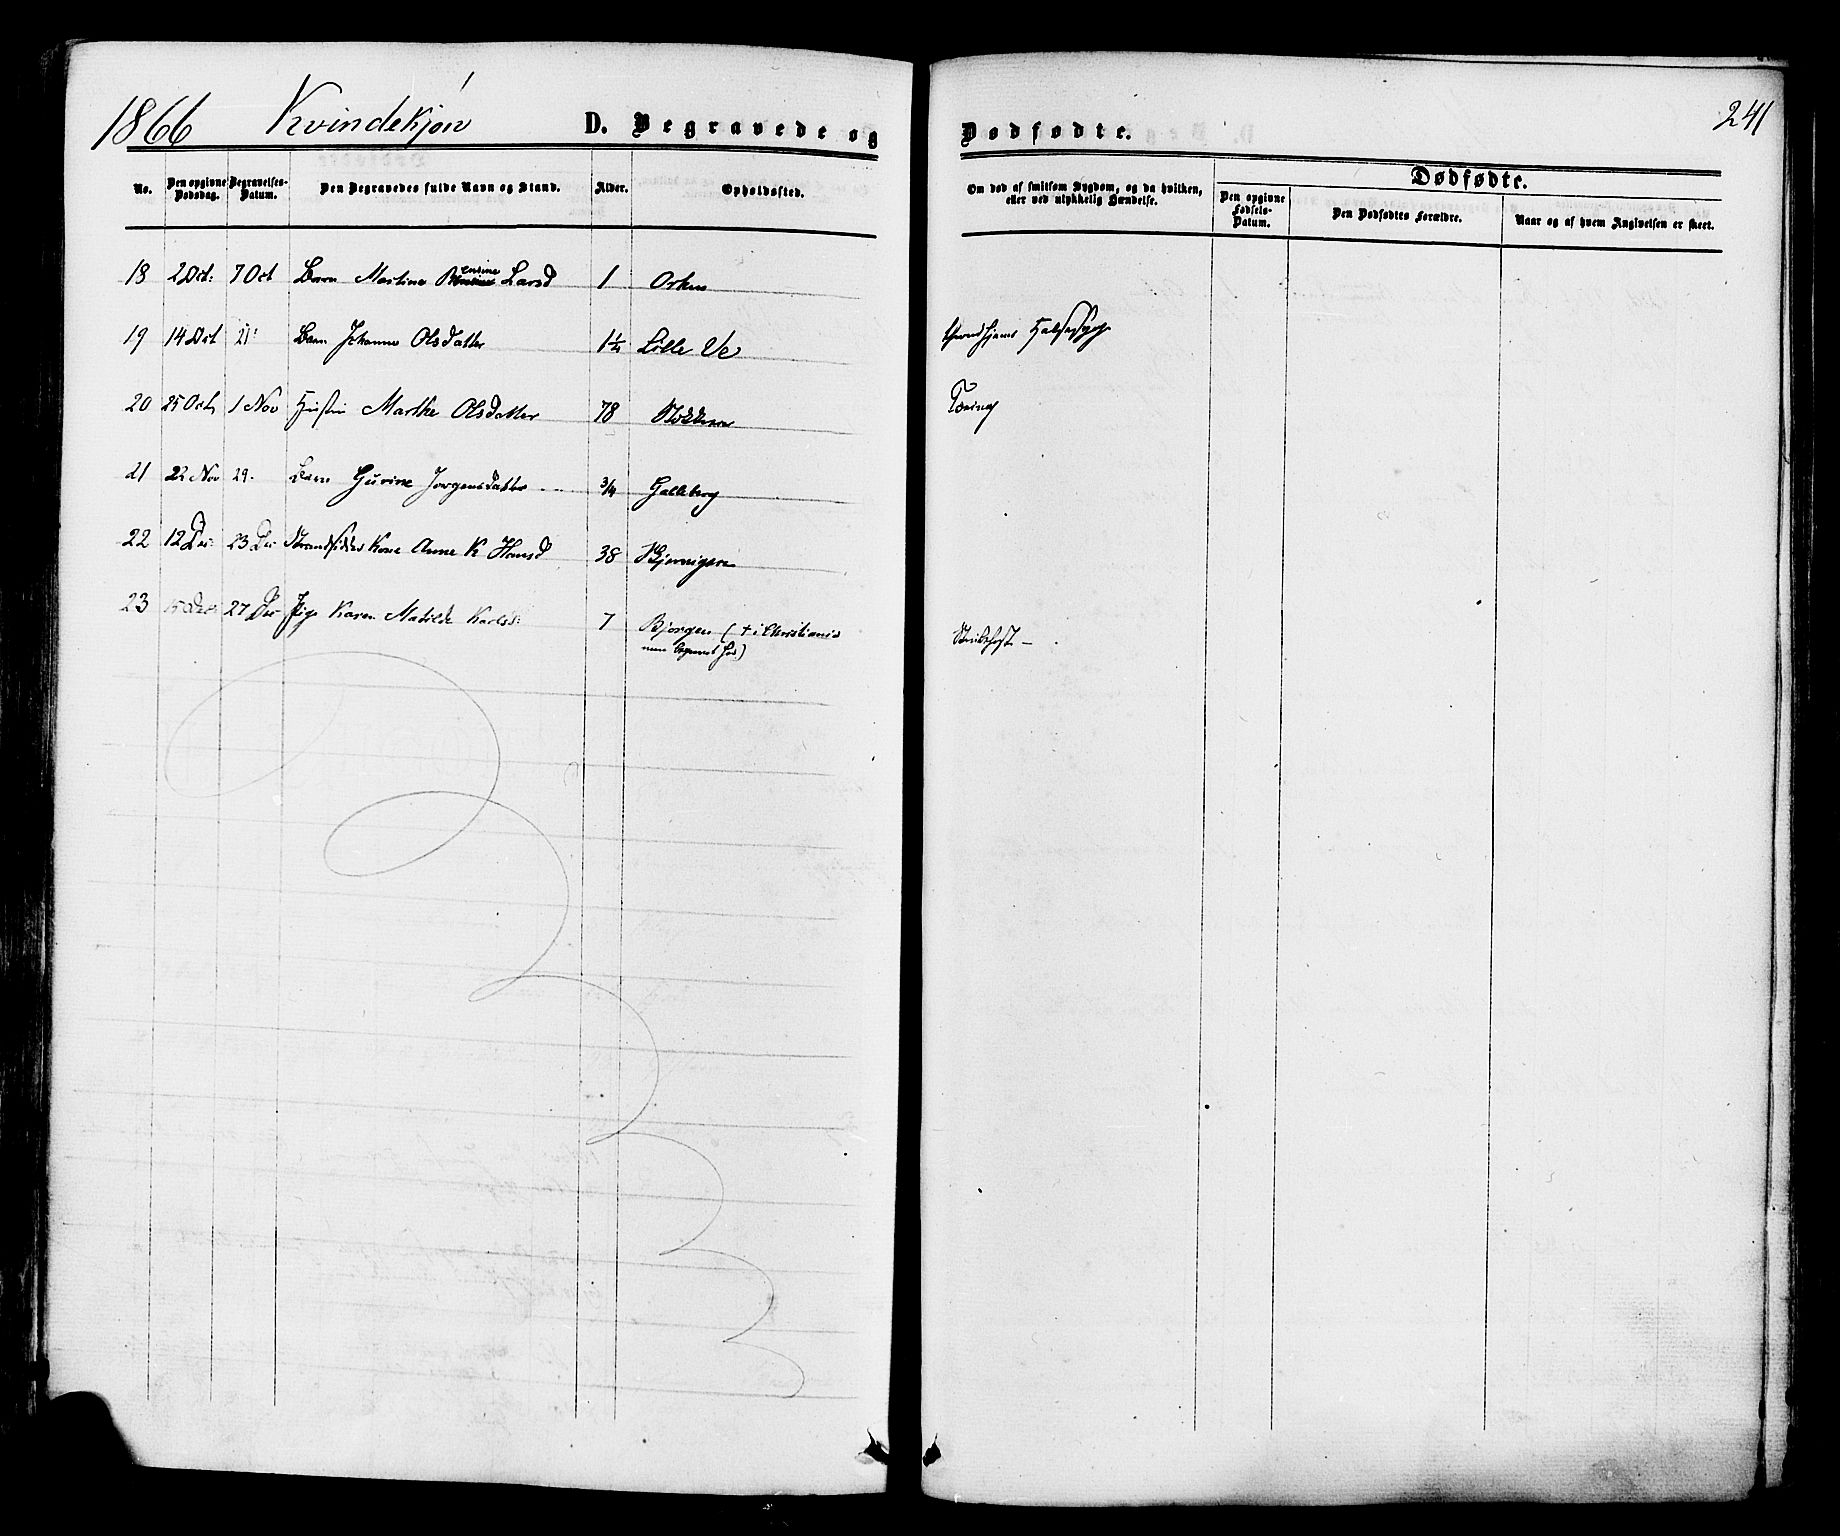 1866 Kvindekjøn D. Begravede og Dødfødte. 241
No. Den opgivne Dødsdag. Begravelses-Datum. Den Begravedes fulde Navn og Stand. Alder. Opholdssted. Om død af smitsom Sygdom, og da hvilken, eller ved ulykkelig Hændelse. Dødfødte.
Den opgivne Fødsels-Datum. Den Dødfødtes Forældre. Naar og af hvem Angivelsen er skeet.
18 2 Oct: 7 Oct Barn Martine Larsd 1
19 14 Oct 21 Barn Johanne Olsdatter 1¼ Lille Ve Halssyge
20 25 Oct 1 Nov Marthe Olsdatter 78 Tæring
21 22 Nov 29. Barn Gurine Jorgensdatter 3/4 Galleberg
22 12 Dec: 23 Dec Strandsidder Kone Anne K Hansd 38
23 15 Dec: 27 Dec Pige Karen Matilde Karlsd: 7 Bjorgen ( + i Christiania
men begravet her) Strubehoste —